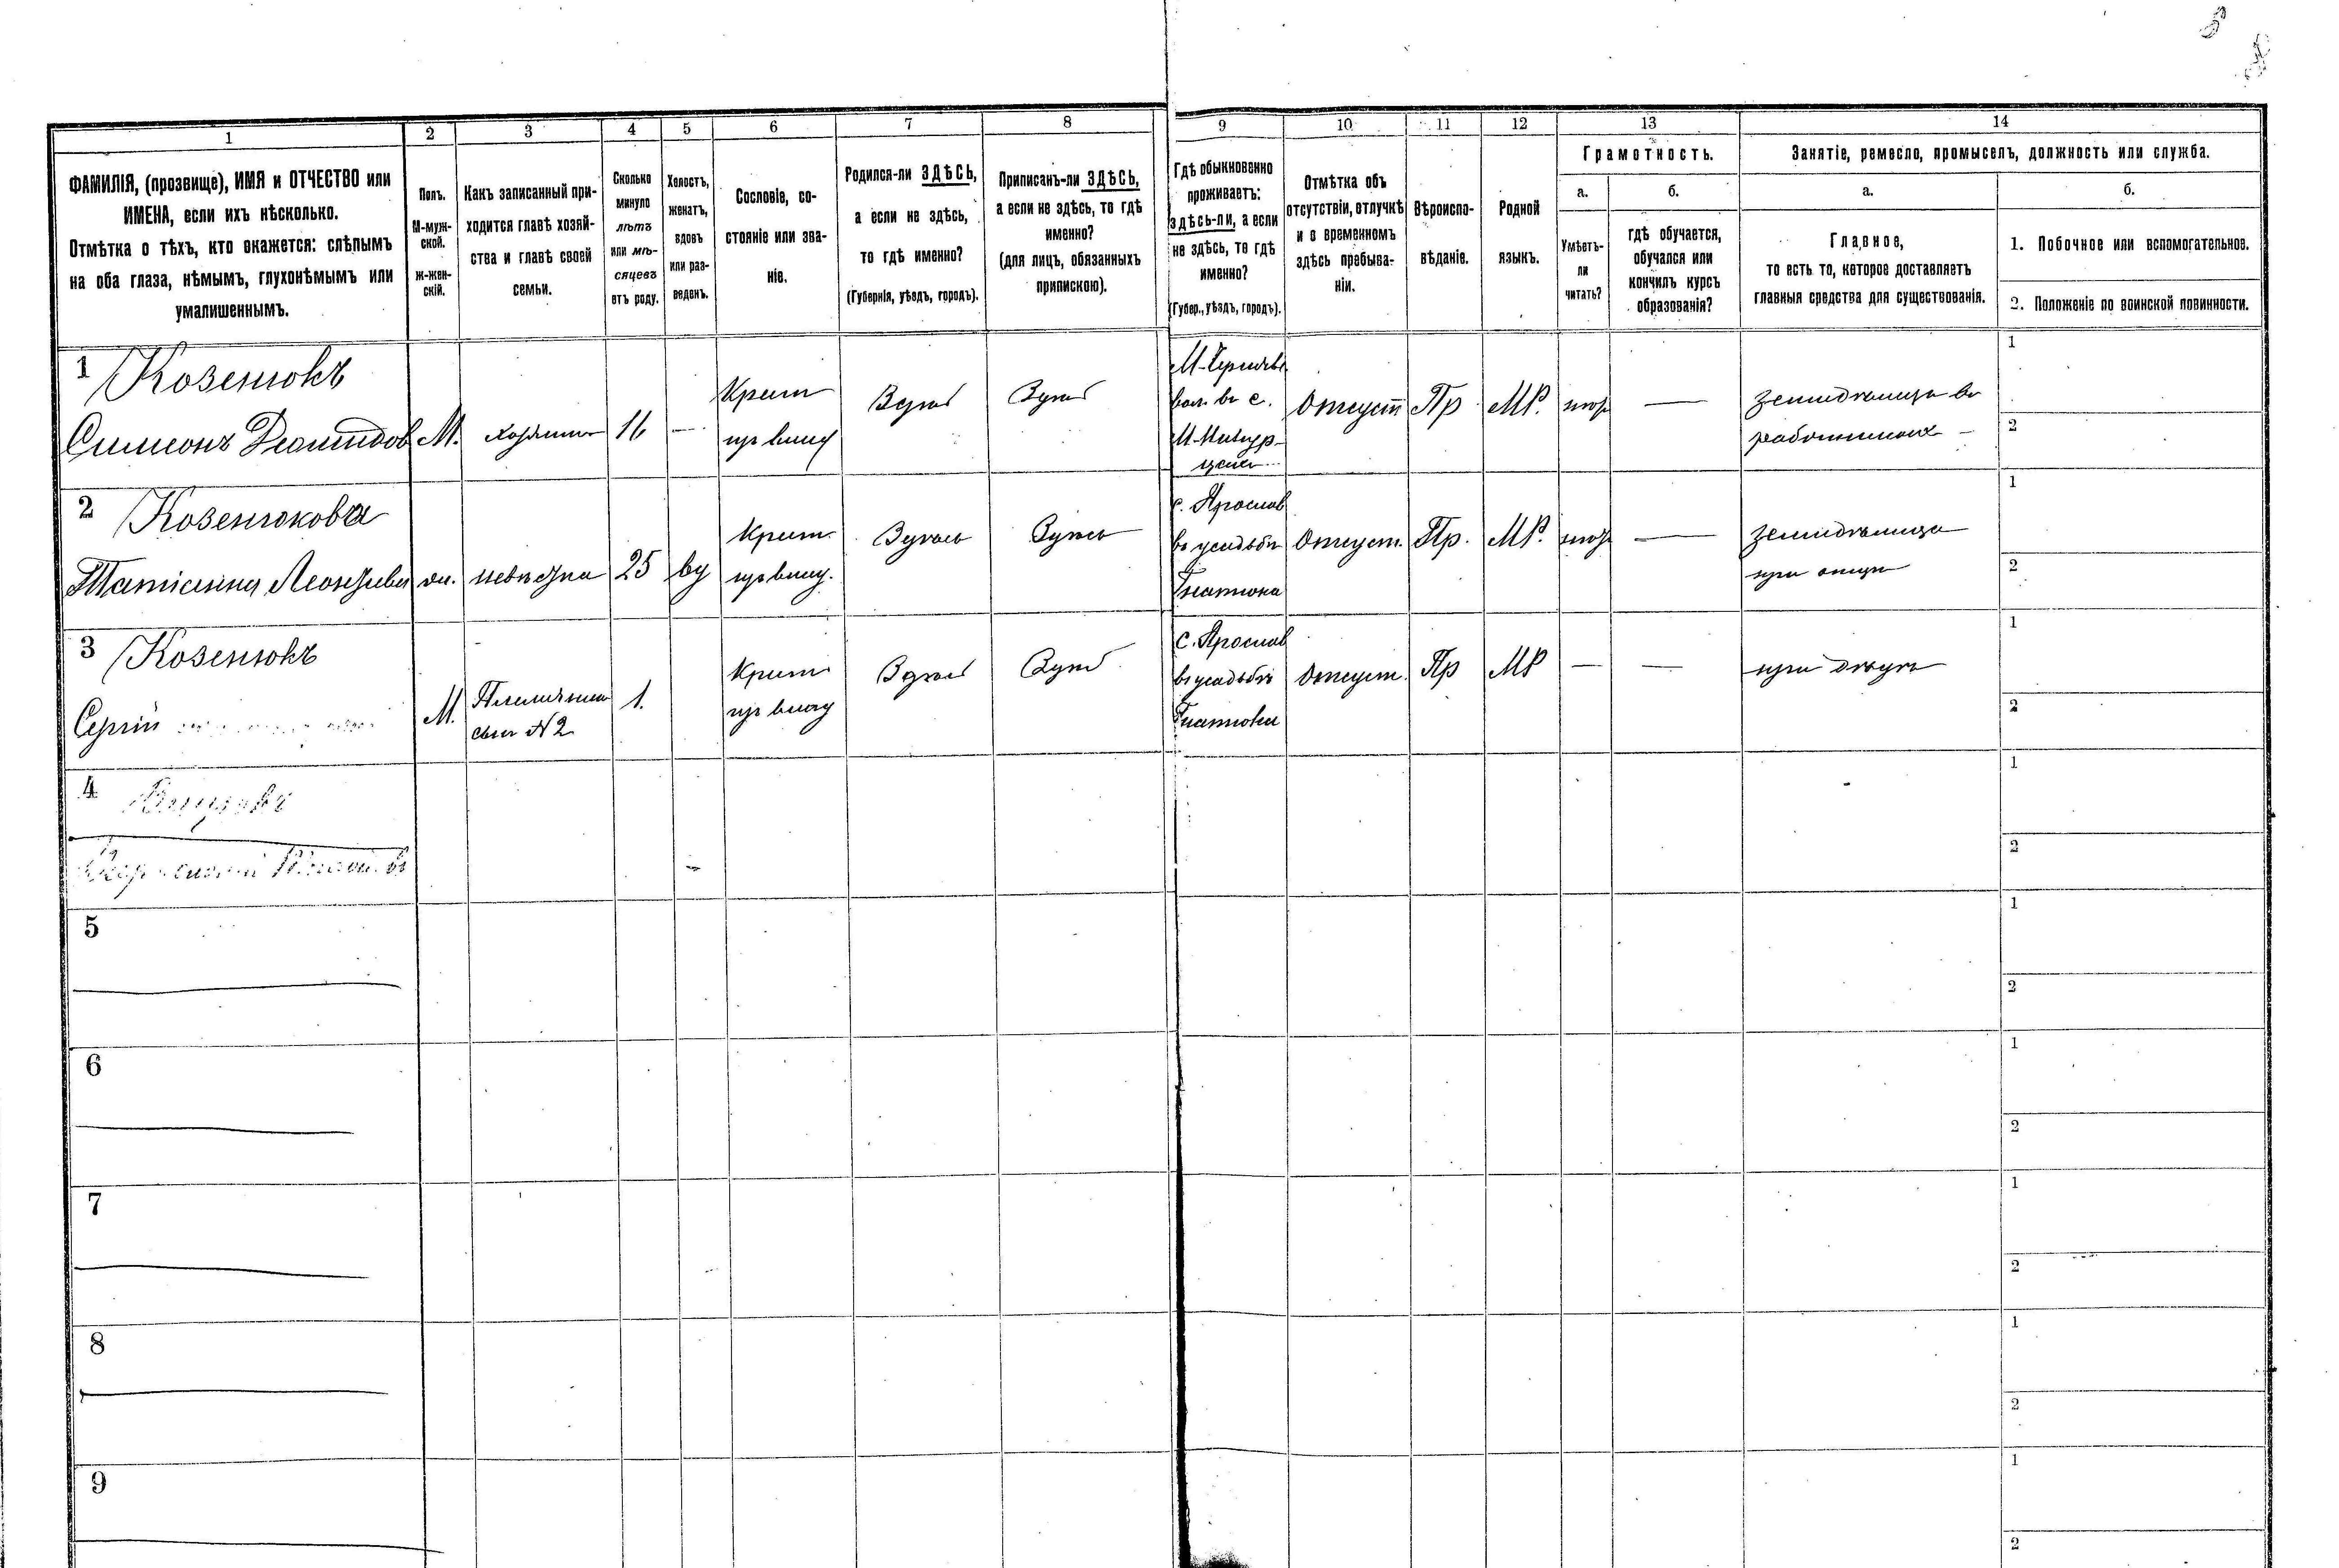 1
2
3
4
5
6
7
8
9
10
11
12
13
14
ФАМИЛІЯ, (прозвище), ИМЯ и ОТЧЕСТВО или
ИМЕНА, если ихъ нѣсколько.
Отмѣтка о тѣхъ, кто окажется: слѣпымъ
на оба глаза, нѣмымъ, глухонѣмымъ или
умалишеннымъ.
Полъ.
М-муж-
ской.
ж-жен-
скій.
Какъ записанный при-
ходится главѣ хозяй-
ства и главѣ своей
семьи.
Сколько
минуло
лѣтъ
или мѣ-
сяцевъ
отъ роду.
Холостъ,
женатъ,
вдовъ
или раз-
веденъ.
Сословіе, со-
стояніе или зва-
ніе.
Родился-ли ЗДѢСЬ,
а если не здѣсь,
то гдѣ именно?
(Губернія, уѣздъ, городъ).
Приписанъ-ли ЗДѢСЬ,
а если не здѣсь, то гдѣ
именно?
(для лицъ, обязанныхъ
припискою).
Гдѣ обыкновенно
проживаетъ:
здѣсь-ли, а если
не здѣсь, то гдѣ
именно?
(Губер., уѣздъ, городъ).
Отмѣтка объ
отсутствіи, отлучкѣ
и о временномъ
здѣсь пребыва-
ніи.
Вѣроиспо-
вѣданіе.
Родной
языкъ.
Грамотность.
а.
Умѣетъ-
ли
читать?
б.
гдѣ обучается,
обучался или
кончилъ курсъ
образованія?
Занятіе, ремесло, промыселъ, должность или служба.
а.
Главное,
то есть то, которое доставляетъ
главныя средства для существованія.
б.
1. Побочное или вспомогательное.
2. Положеніе по воинской повинности.
1 Козенюкъ
Симеонъ Демидов
М.
хозяинъ
16
—
Крест
из влад
Здесь
Здесь
вол. въ с.
Отсутст
Пр
МР.
—
земледелица въ
работникахъ
1
2
2 Козенюкова
Татіанна Леонтіева
ж.
невестка
25
вд
Крест.
из влад.
Здесь
Здесь
с. Ярослав
въ усадьбе
Гнатюка
Отсутст.
Пр.
МР.
—
земледелица
при отце
1
2
3 Козенюкъ
Сергій
М.
Племянник
сын №2
1.
Крест
из влад
Здесь
Здесь
С. Ярослав
въ усадьбе
Гнатюка
Отсутст.
Пр
МР
—
—
при дѣдѣ
1
2
4
1
2
5
1
2
6
1
2
7
1
2
8
1
2
9
1
2